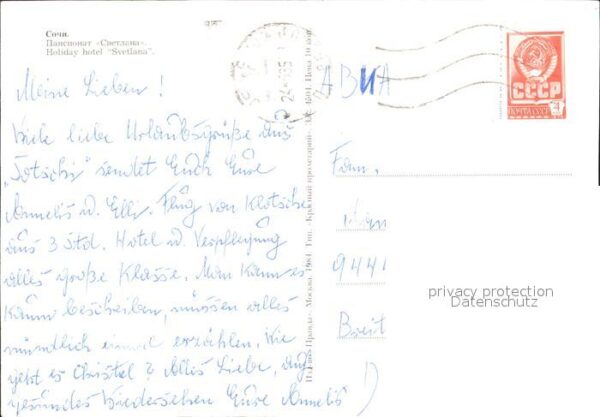 Сочи.
Пансионат «Светлана».
Holiday hotel "Svetlana".
Meine Lieben!
Viele liebe Urlaubsgrüße aus
"Sotschi" sendet Euch Eure
Annelis u. Elli. Flug von Klotsche
aus 3 Std. Hotel u. Verpflegung
alles große Klasse. Man kann es
kaum beschreiben, müssen alles
mündlich einmal erzählen. Wie
geht es Christel? Alles Liebe, auf
gesundes Wiedersehen Eure Annelis
АВИА
СССР
ПОЧТА СССР
Fam.
9441
Breit
privacy protection
Datenschutz